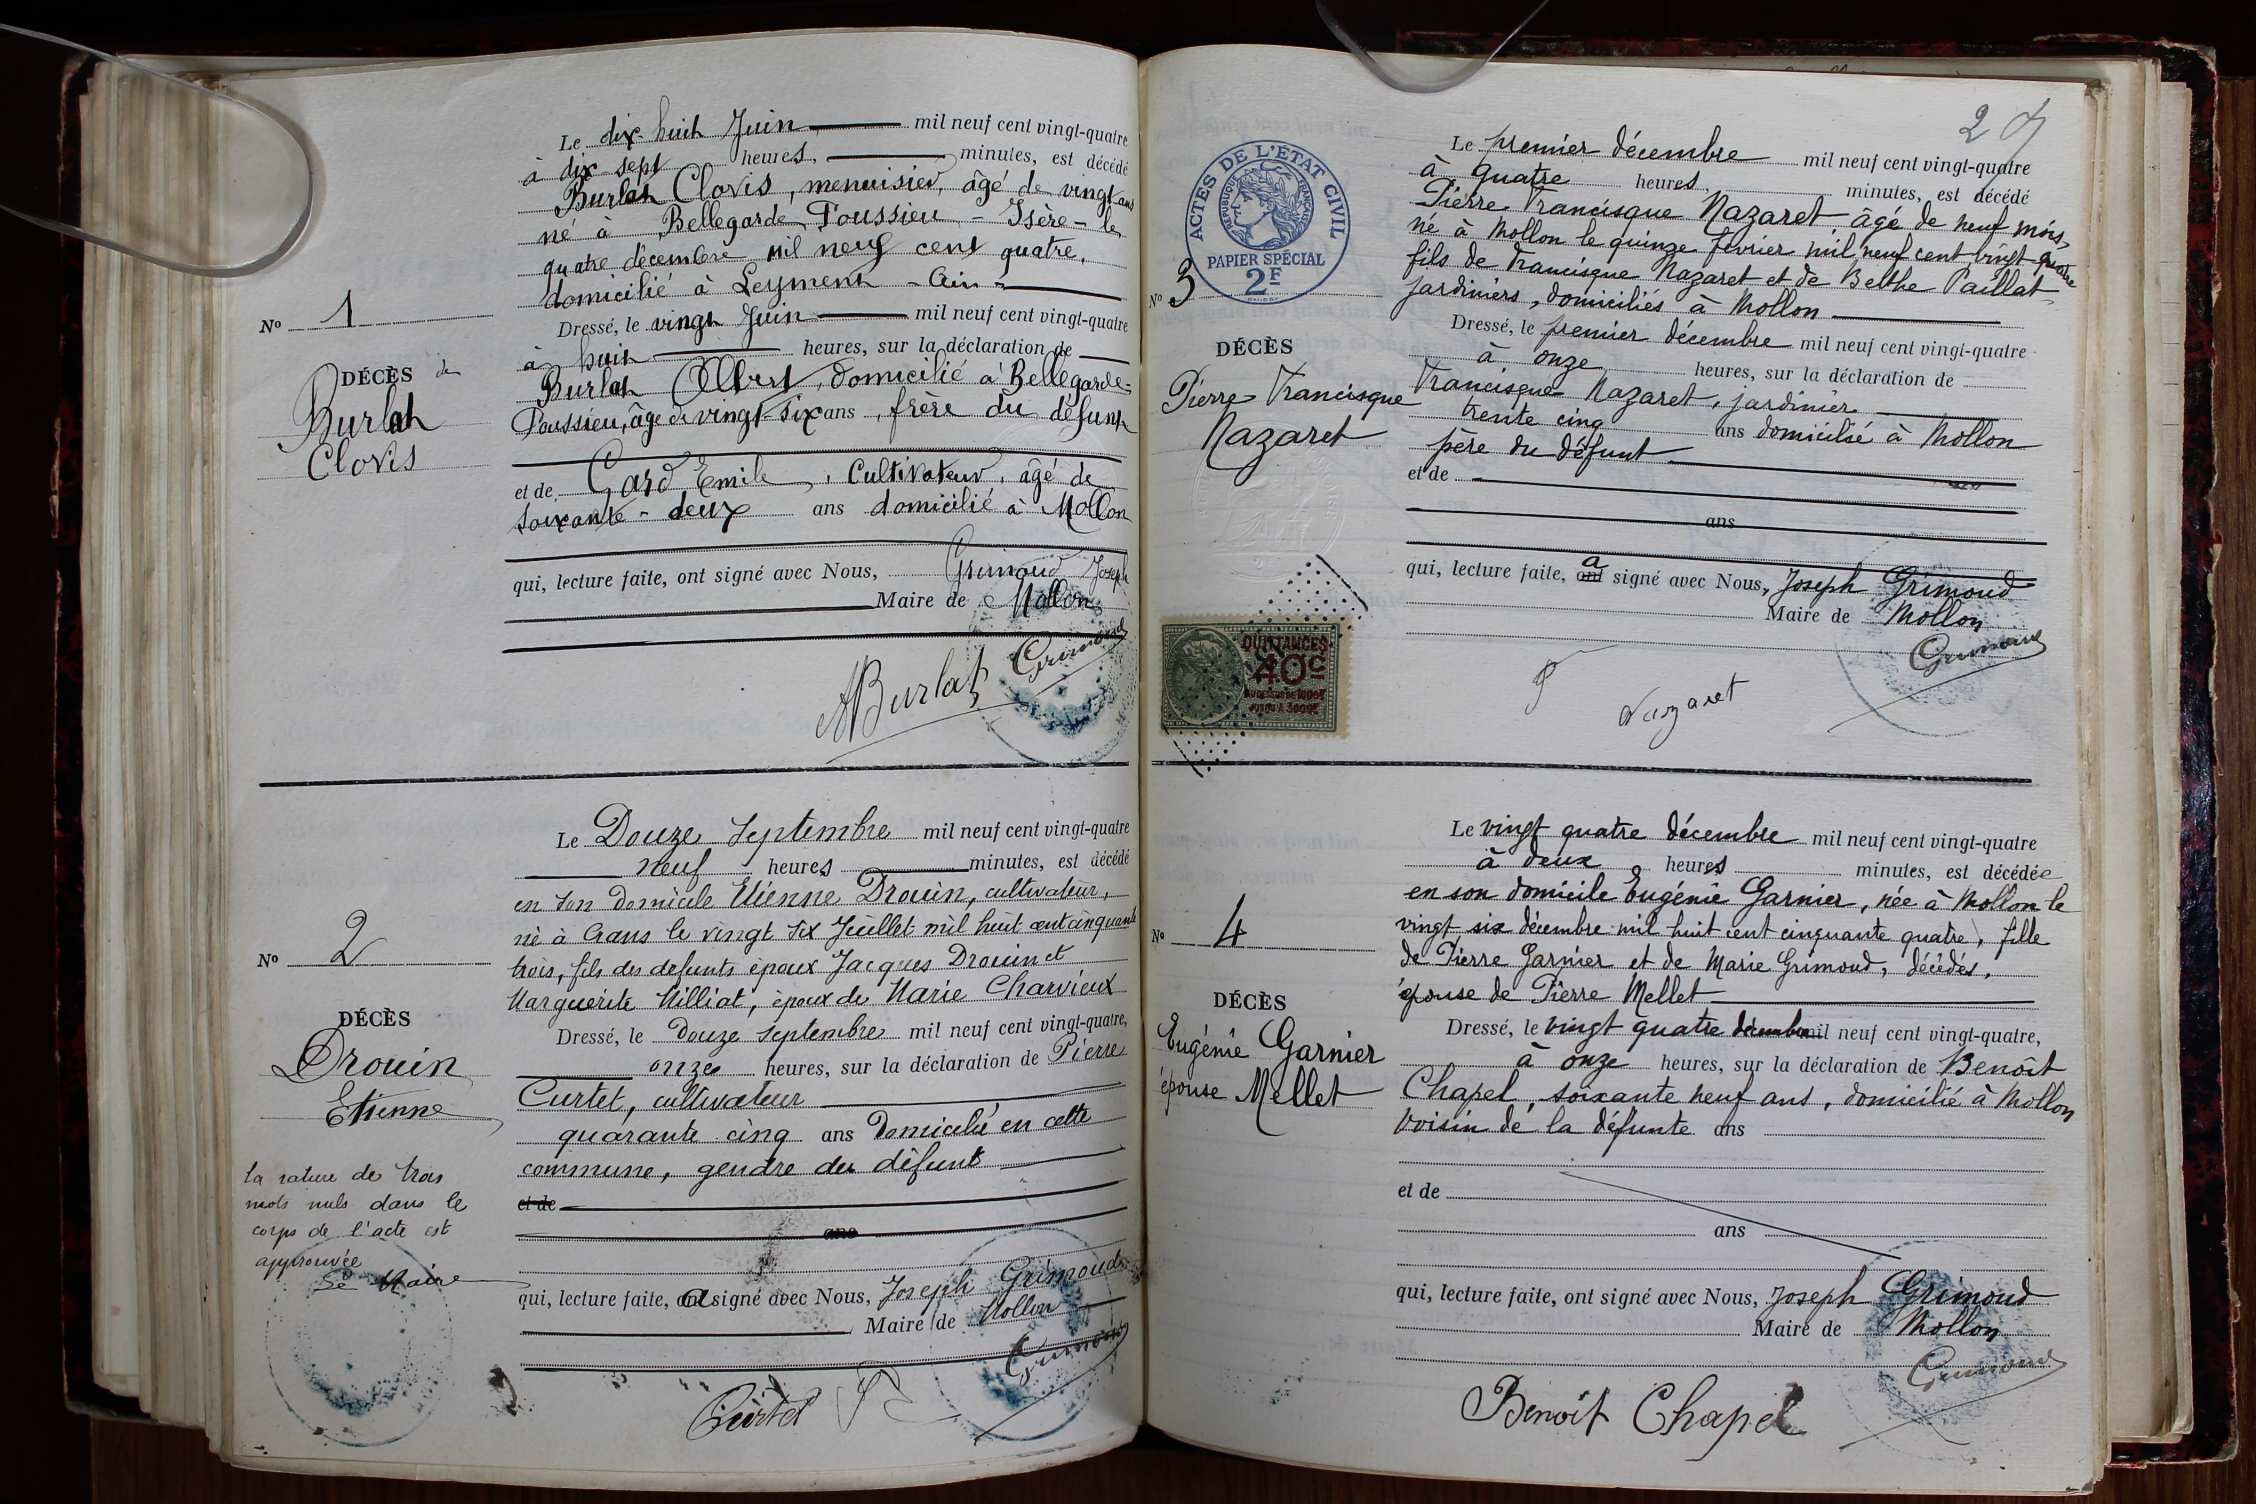 Le dix-huit Juin mil neuf cent vingt-quatre
à dix sept heures, minutes, est décédé
Burlat Clovis, menuisier, âgé de vingt ans
né à Bellegarde Poussieu - Isère - le
quatre décembre mil neuf cent quatre,
domicilié à Leyment - Ain -
Nº 1
Dressé, le vingt Juin mil neuf cent vingt-quatre
à huit heures, sur la déclaration de
DÉCÈS de
Burlat
Clovis
Burlat Albert, domicilié à Bellegarde-
Poussieu, âgé de vingt-six ans, frère du défunt
et de Gard Emile, Cultivateur, âgé de
soixante-deux ans domicilié à Mollon
qui, lecture faite, ont signé avec Nous, Grimoud Joseph
Maire de Mollon
ABurlat Grimoud
Le Douze Septembre mil neuf cent vingt-quatre
neuf heures minutes, est décédé
en son Domicile Etienne Drouin, cultivateur,
né à Crans le vingt six Juillet mil huit cent cinquante
Nº 2
trois, fils des defunts époux Jacques Drouin et
Marguerite Milliat, époux de Marie Charvieux
DÉCÈS
Drouin
Etienne
Dressé, le douze septembre mil neuf cent vingt-quatre,
onze heures, sur la déclaration de Pierre
Curtet, cultivateur
quarante cinq ans Domicilié en cette
commune, gendre du défunt
et de
ans
la rature de trois
mots nuls dans le
corps de l'acte est
approuvée
Le Maire
qui, lecture faite, ont a signé avec Nous, Joseph Grimoud
Maire de Mollon
Grimoud
Curtet
2
ACTES DE L'ÉTAT CIVIL
RÉPUBLIQUE FRANÇAISE
PAPIER SPÉCIAL
2F
Le premier décembre mil neuf cent vingt-quatre
à quatre heures, minutes, est décédé
Pierre Francisque Nazaret, âgé de neuf mois,
né à Mollon le quinze février mil neuf cent vingt quatre
fils de Francisque Nazaret et de Belthe Paillat
jardiniers, domiciliés à Mollon
Nº 3
DÉCÈS
Pierre Francisque
Nazaret
Dressé, le premier décembre mil neuf cent vingt-quatre
à onze heures, sur la déclaration de
Francisque Nazaret, jardinier
trente cinq ans domicilié à Mollon
père du défunt
et de
ans
qui, lecture faite, ont a signé avec Nous, Joseph Grimoud
Maire de Mollon
Grimoud
Nazaret
QUITTANCES
40c
Le vingt quatre décembre mil neuf cent vingt-quatre
à deux heures minutes, est décédée
en son domicile Eugénie Garnier, née à Mollon le
vingt six décembre mil huit cent cinquante quatre, fille
de Pierre Garnier et de Marie Grimoud, décédés,
épouse de Pierre Mellet
Nº 4
DÉCÈS
Eugénie Garnier
épouse Mellet
Dressé, le vingt quatre décembre mil neuf cent vingt-quatre,
à onze heures, sur la déclaration de Benoît
Chapel, soixante neuf ans, domicilié à Mollon
voisin de la défunte. ans
et de
ans
qui, lecture faite, ont signé avec Nous, Joseph Grimoud
Maire de Mollon
Grimoud
Benoit Chapel